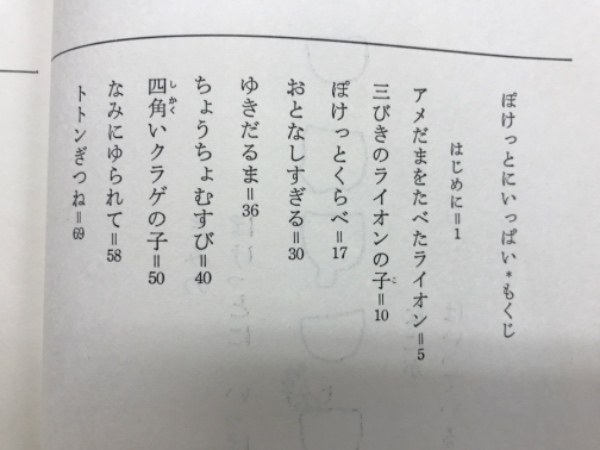 ぽけっとにいっぱい●もくじ
はじめに＝1
アメだまをたべたライオン＝5
三びきのライオンの子＝10
ぽけっとくらべ＝17
おとなしすぎる＝30
ゆきだるま＝36
ちょうちょむすび＝40
四角いクラゲの子＝50
なみにゆられて＝58
トトンぎつね＝69